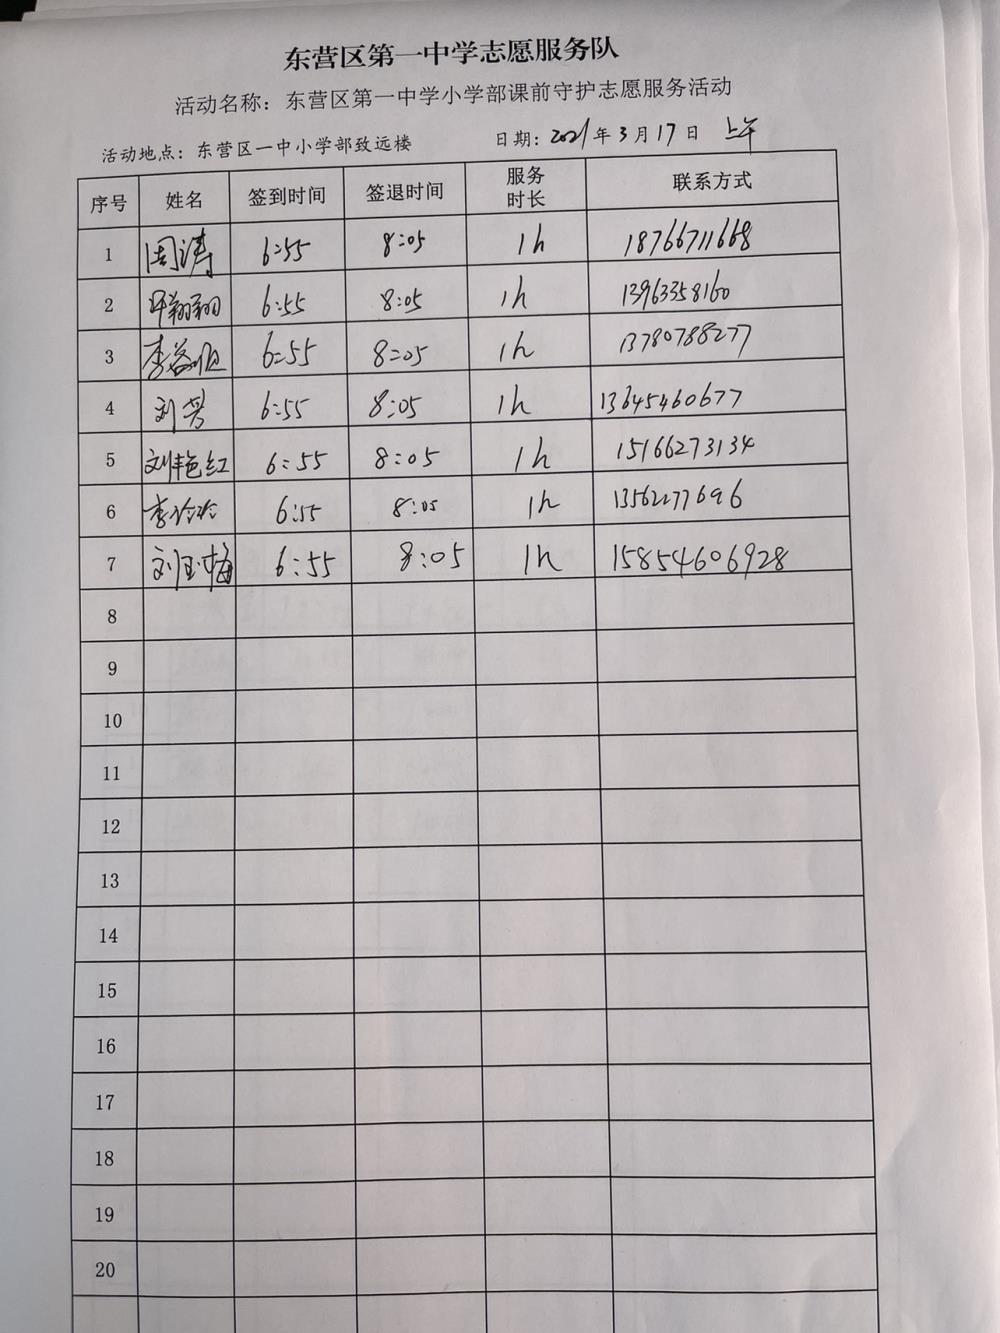 东营区第一中学志愿服务队
活动名称：东营区第一中学小学部课前守护志愿服务活动
活动地点：东营区一中小学部致远楼 日期：2021年3月17日 上午
序号 姓名 签到时间 签退时间 服务时长 联系方式
1 周涛 6:55 8:05 1h 18766711668
2 翔翔 6:55 8:05 1h 13963358160
3 李 6:55 8:05 1h 13780788277
4 刘芳 6:55 8:05 1h 13645460677
5 刘艳红 6:55 8:05 1h 15166273134
6 李玲玲 6:55 8:05 1h 13562277696
7 刘玉梅 6:55 8:05 1h 15854606928
8
9
10
11
12
13
14
15
16
17
18
19
20